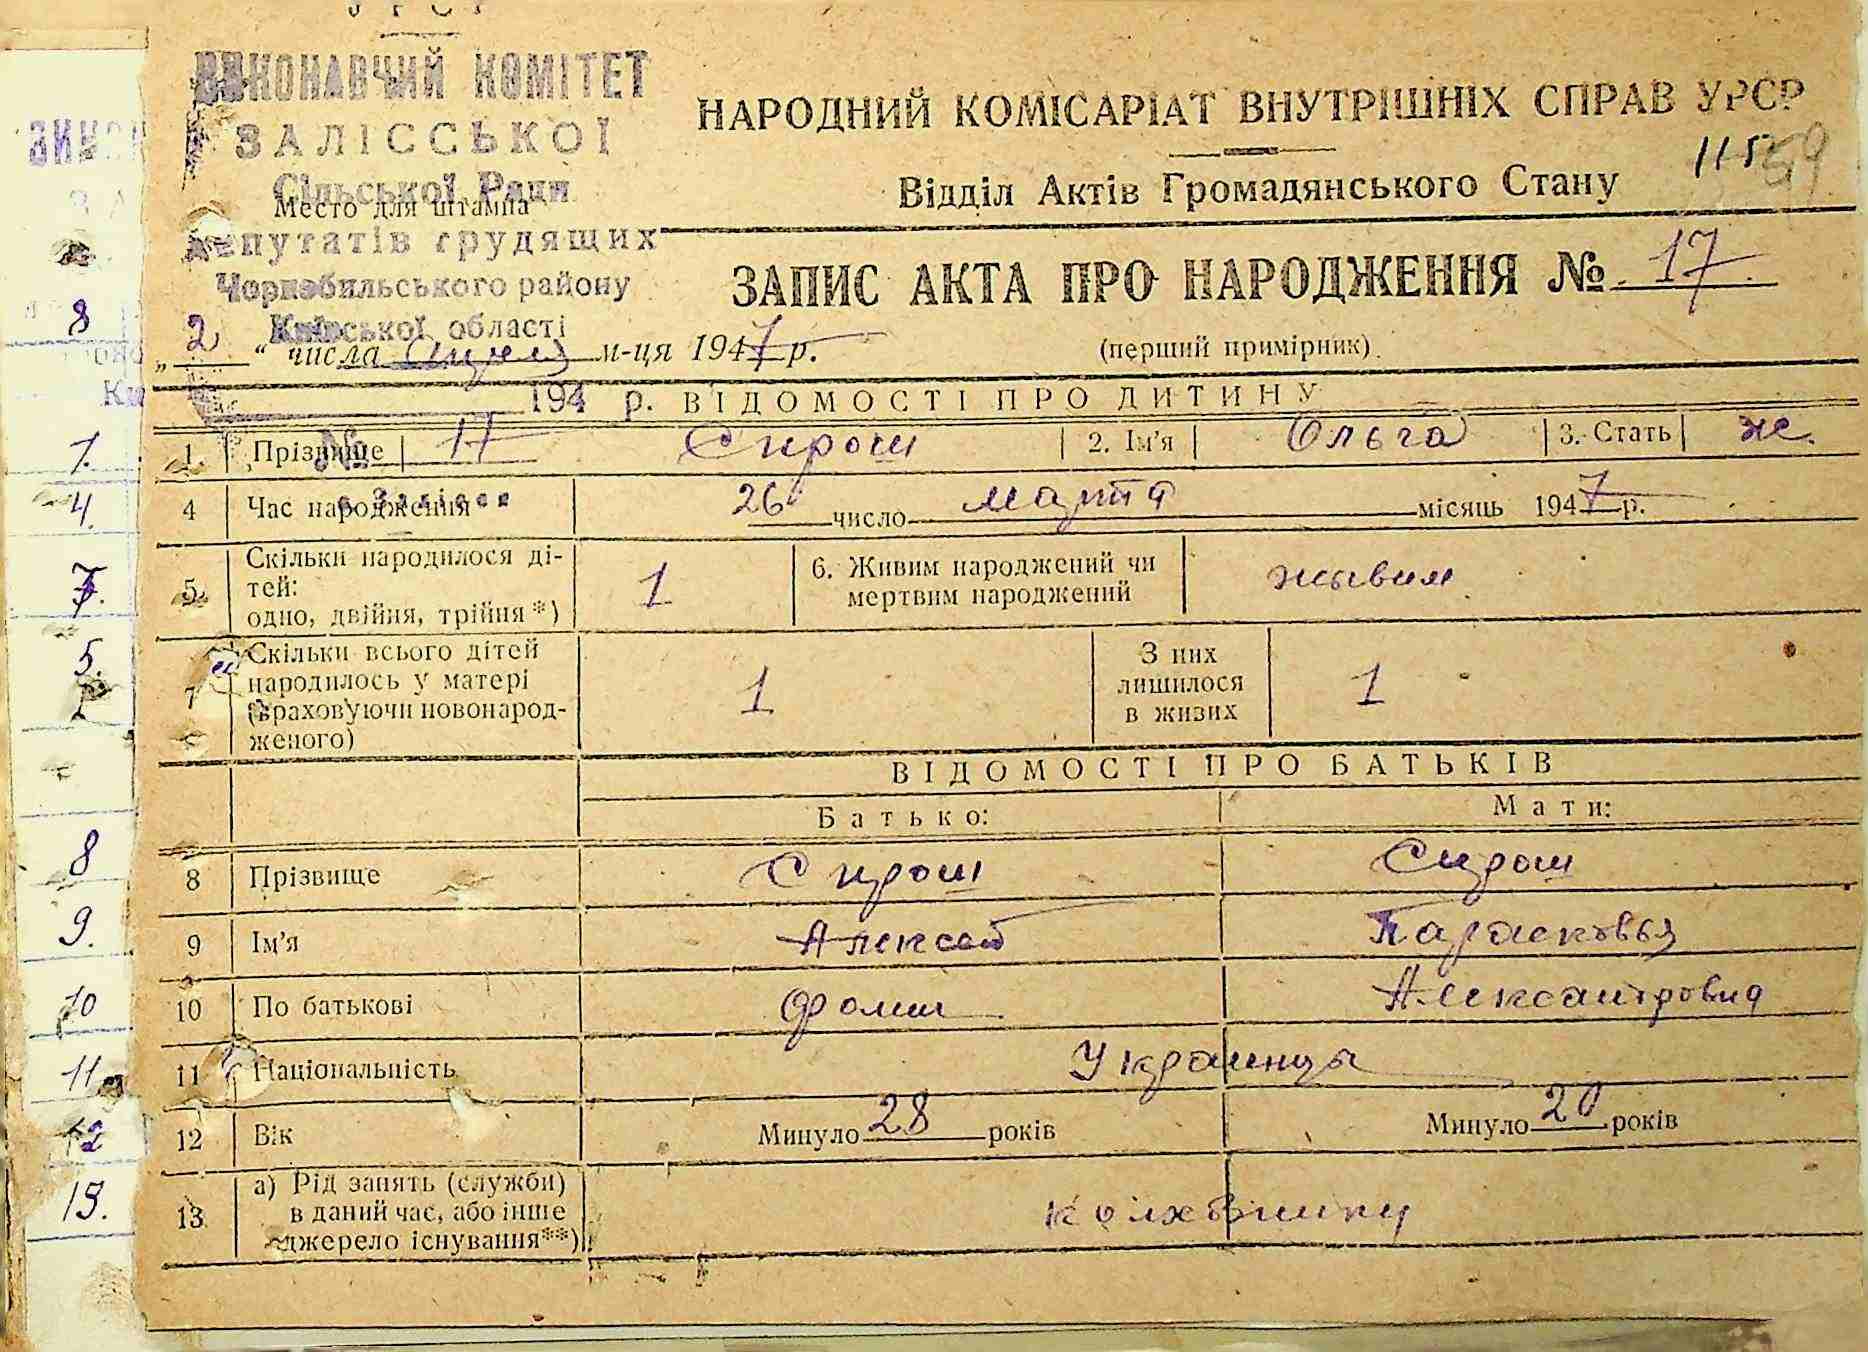 УРСР
ВИКОНАВЧИЙ КОМІТЕТ
ЗАЛІССЬКОЇ
Сільської Ради
Место для штампа
депутатів трудящих
Чорнобильського району
Київської області
194 р.
№ 17
с. Залісся
НАРОДНИЙ КОМІСАРІАТ ВНУТРІШНІХ СПРАВ УРСР
115 59
Відділ Актів Громадянського Стану
ЗАПИС АКТА ПРО НАРОДЖЕННЯ № 17.
„2“ числа м-ця 1947 р. (перший примірник).
ВІДОМОСТІ ПРО ДИТИНУ
1 Прізвище Сирош 2. Ім'я Ольга 3. Стать ж.
4 Час народження 26 число марта місяць 1947 р.
5 Скільки народилося ді-
тей:
одно, двійня, трійня *) 1 6. Живим народжений чи
мертвим народжений живим
7 Скільки всього дітей
народилось у матері
(враховуючи новонарод-
женого) 1 З них
лишилося
в живих 1
ВІДОМОСТІ ПРО БАТЬКІВ
Батько: Мати:
8 Прізвище Сирош Сирош
9 Ім'я Алексей Парасковья
10 По батькові Фомич Александровна
11 Національність Украинцы
12 Вік Минуло 28 років Минуло 20 років
13 а) Рід занять (служби)
в даний час, або інше
джерело існування**) колхозники
8
1.
4.
7.
5.
8
9.
10
11
12
13.